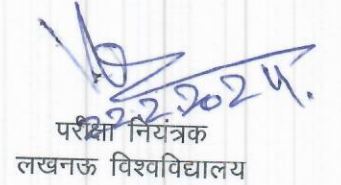 22.2.2024.
परीक्षा नियंत्रक
लखनऊ विश्वविद्यालय